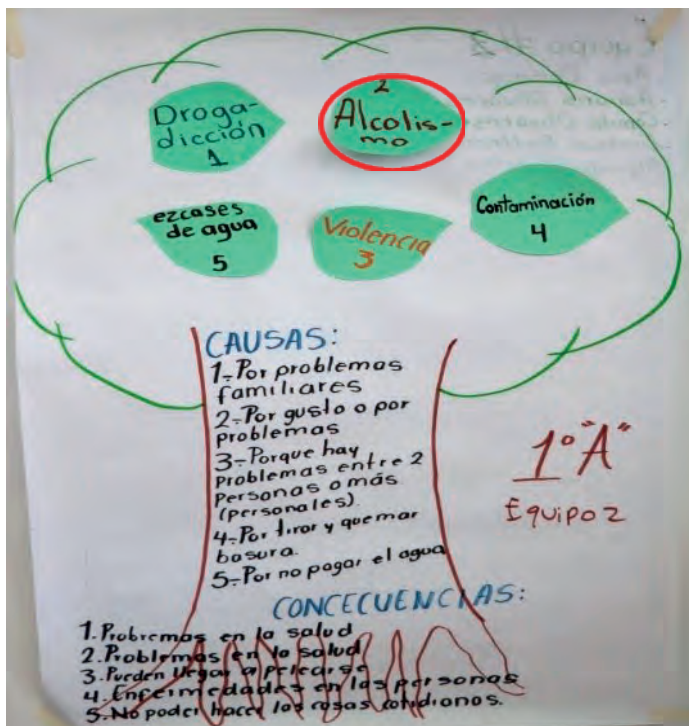 Droga-
dicción
1
2
Alcolis-
mo
ezcases
de agua
5
Violencia
3
Contaminación
4
CAUSAS:
1-Por problemas
familiares
2-Por gusto o por
problemas
3-Porque hay
problemas entre 2
personas o más
(personales).
4-Por tirar y quemar
basura.
5-Por no pagar el agua
1° "A"
Equipo 2
CONCECUENCIAS:
1.Probremas en la salud
2.Problemas en la salud
3.Pueden llegar a pelearse
4.Enfermedades en las personas
5.No poder hacer las cosas cotidianas.